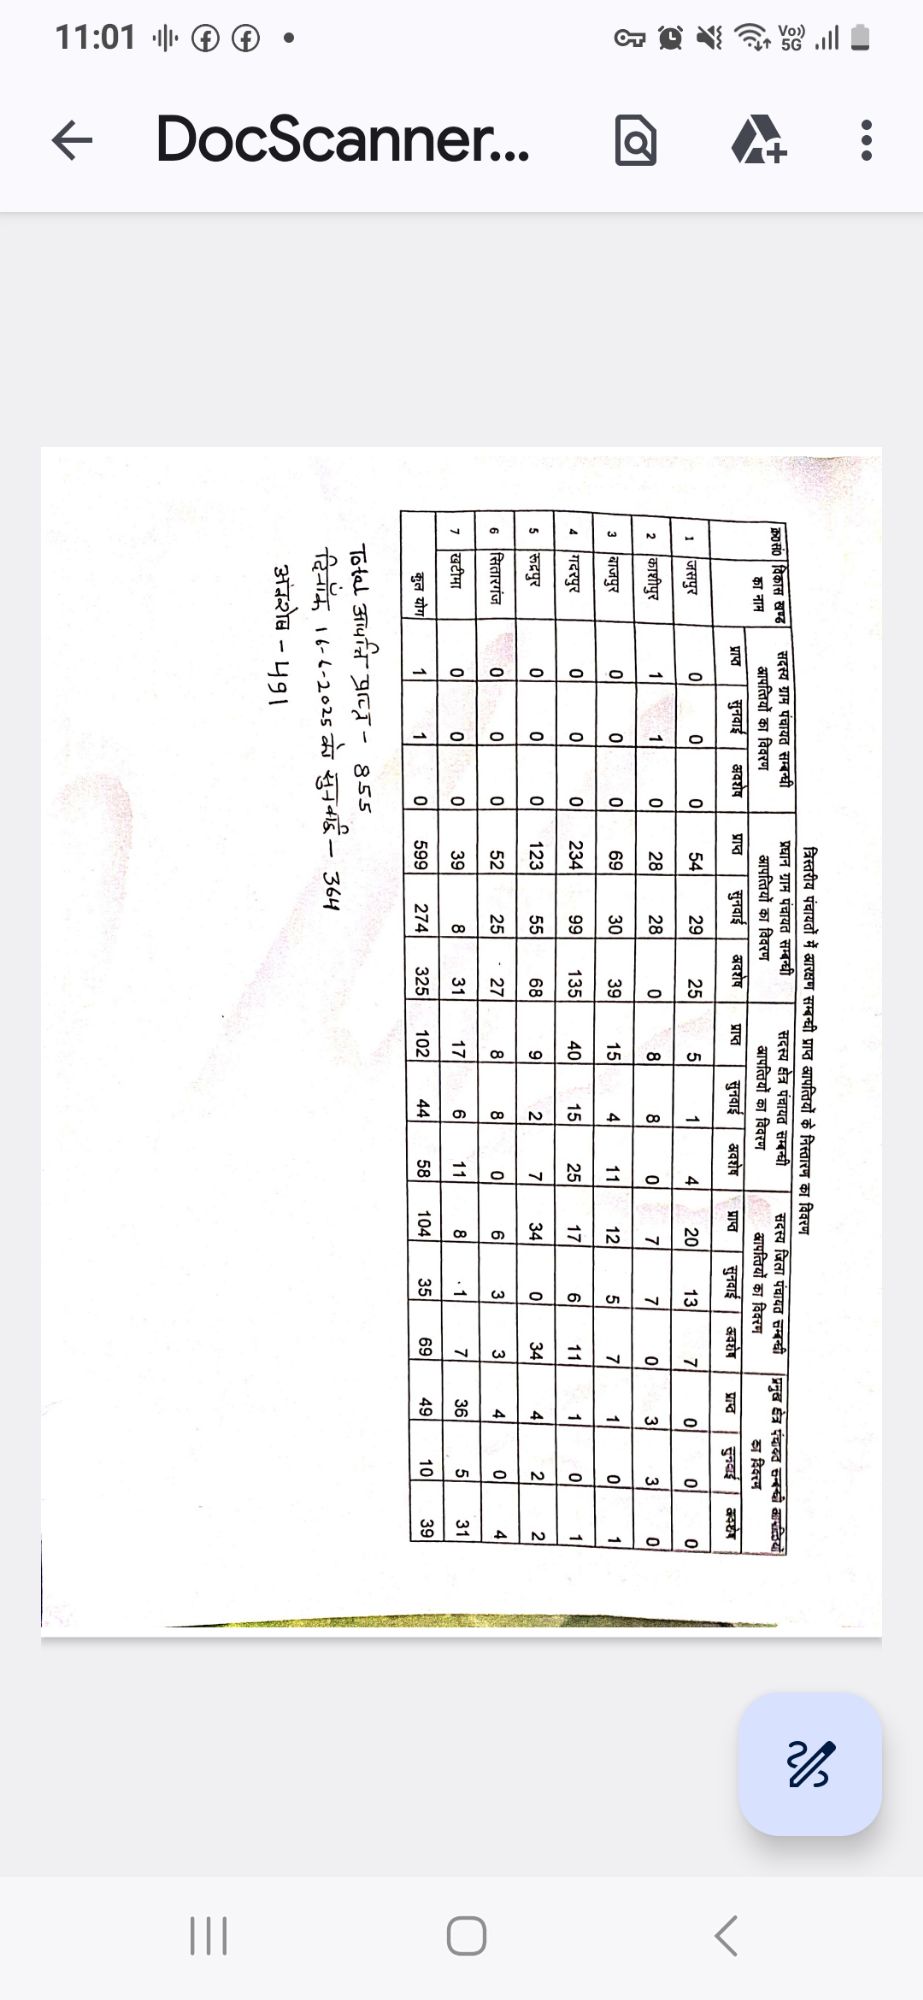 11:01
Vo))
5G
DocScanner...
त्रिस्तरीय पंचायतों में आरक्षण सम्बन्धी प्राप्त आपत्तियों के निस्तारण का विवरण
क्र०सं० विकास खण्ड का नाम सदस्य ग्राम पंचायत सम्बन्धी आपत्तियों का विवरण प्रधान ग्राम पंचायत सम्बन्धी आपत्तियों का विवरण सदस्य क्षेत्र पंचायत सम्बन्धी आपत्तियों का विवरण सदस्य जिला पंचायत सम्बन्धी आपत्तियों का विवरण प्रमुख क्षेत्र पंचायत सम्बन्धी आपत्तियों का विवरण
प्राप्त सुनवाई अवशेष प्राप्त सुनवाई अवशेष प्राप्त सुनवाई अवशेष प्राप्त सुनवाई अवशेष प्राप्त सुनवाई अवशेष
1 जसपुर 0 0 0 54 29 25 5 1 4 20 13 7 0 0 0
2 काशीपुर 1 1 0 28 28 0 8 8 0 7 7 0 3 3 0
3 बाजपुर 0 0 0 69 30 39 15 4 11 12 5 7 1 0 1
4 गदरपुर 0 0 0 234 99 135 40 15 25 17 6 11 1 0 1
5 रूद्रपुर 0 0 0 123 55 68 9 2 7 34 0 34 4 2 2
6 सितारगंज 0 0 0 52 25 27 8 8 0 6 3 3 4 0 4
7 खटीमा 0 0 0 39 8 31 17 6 11 8 1 7 36 5 31
कुल योग 1 1 0 599 274 325 102 44 58 104 35 69 49 10 39
Total आपत्ति प्राप्त - 855
दिनांक 16-6-2025 को सुनवाई - 364
अवशेष - 491